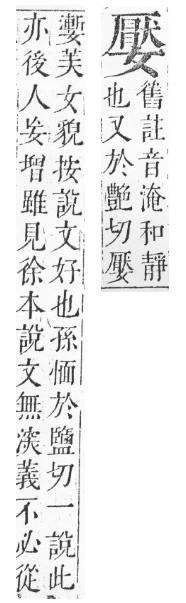 嬮
舊註音淹和靜
也又於艷切嬮
美女貌按說文好也孫愐於鹽切一說此
亦後人妄增雖見徐本說文無深義不必從